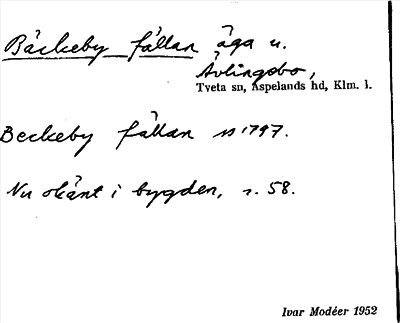 Bäckeby fällan äga u.
Åvlingebo,
Tveta sn, Aspelands hd, Klm. l.
Beckeby fällan 1797.
Nu okänt i bygden, s. 58.
Ivar Modéer 1952